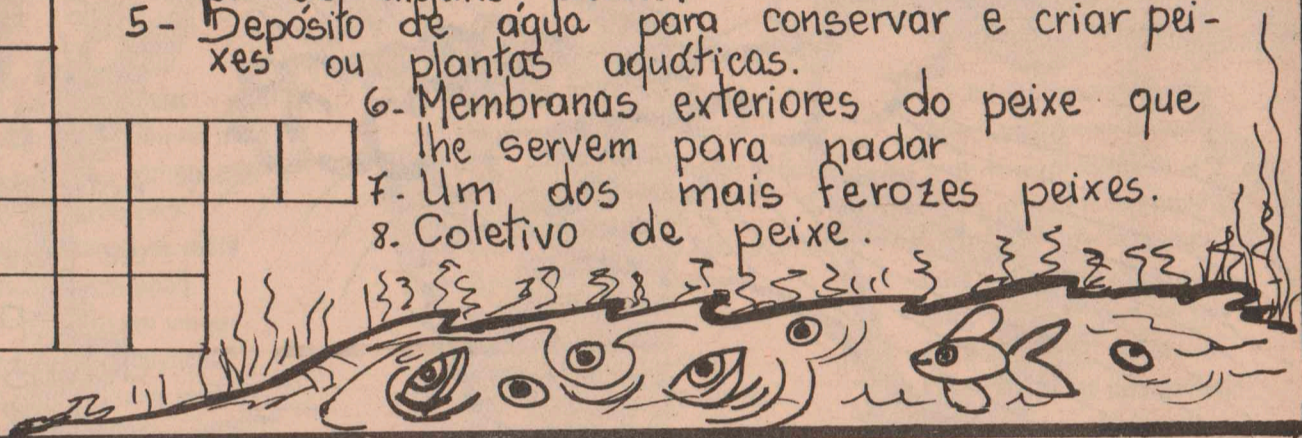 5- Depósito de água para conservar e criar pei-
xes ou plantas aquáticas.
6- Membranas exteriores do peixe que
lhe servem para nadar
7. Um dos mais ferozes peixes.
8. Coletivo de peixe.